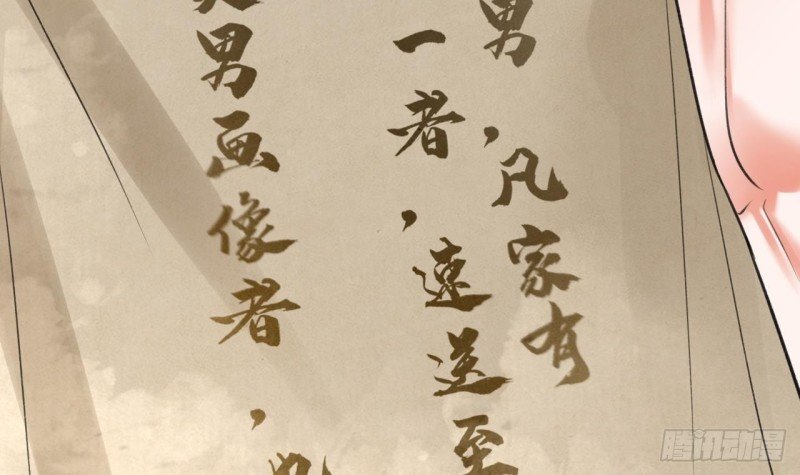 男，凡家有
一者，速送至
男画像者，
腾讯动漫